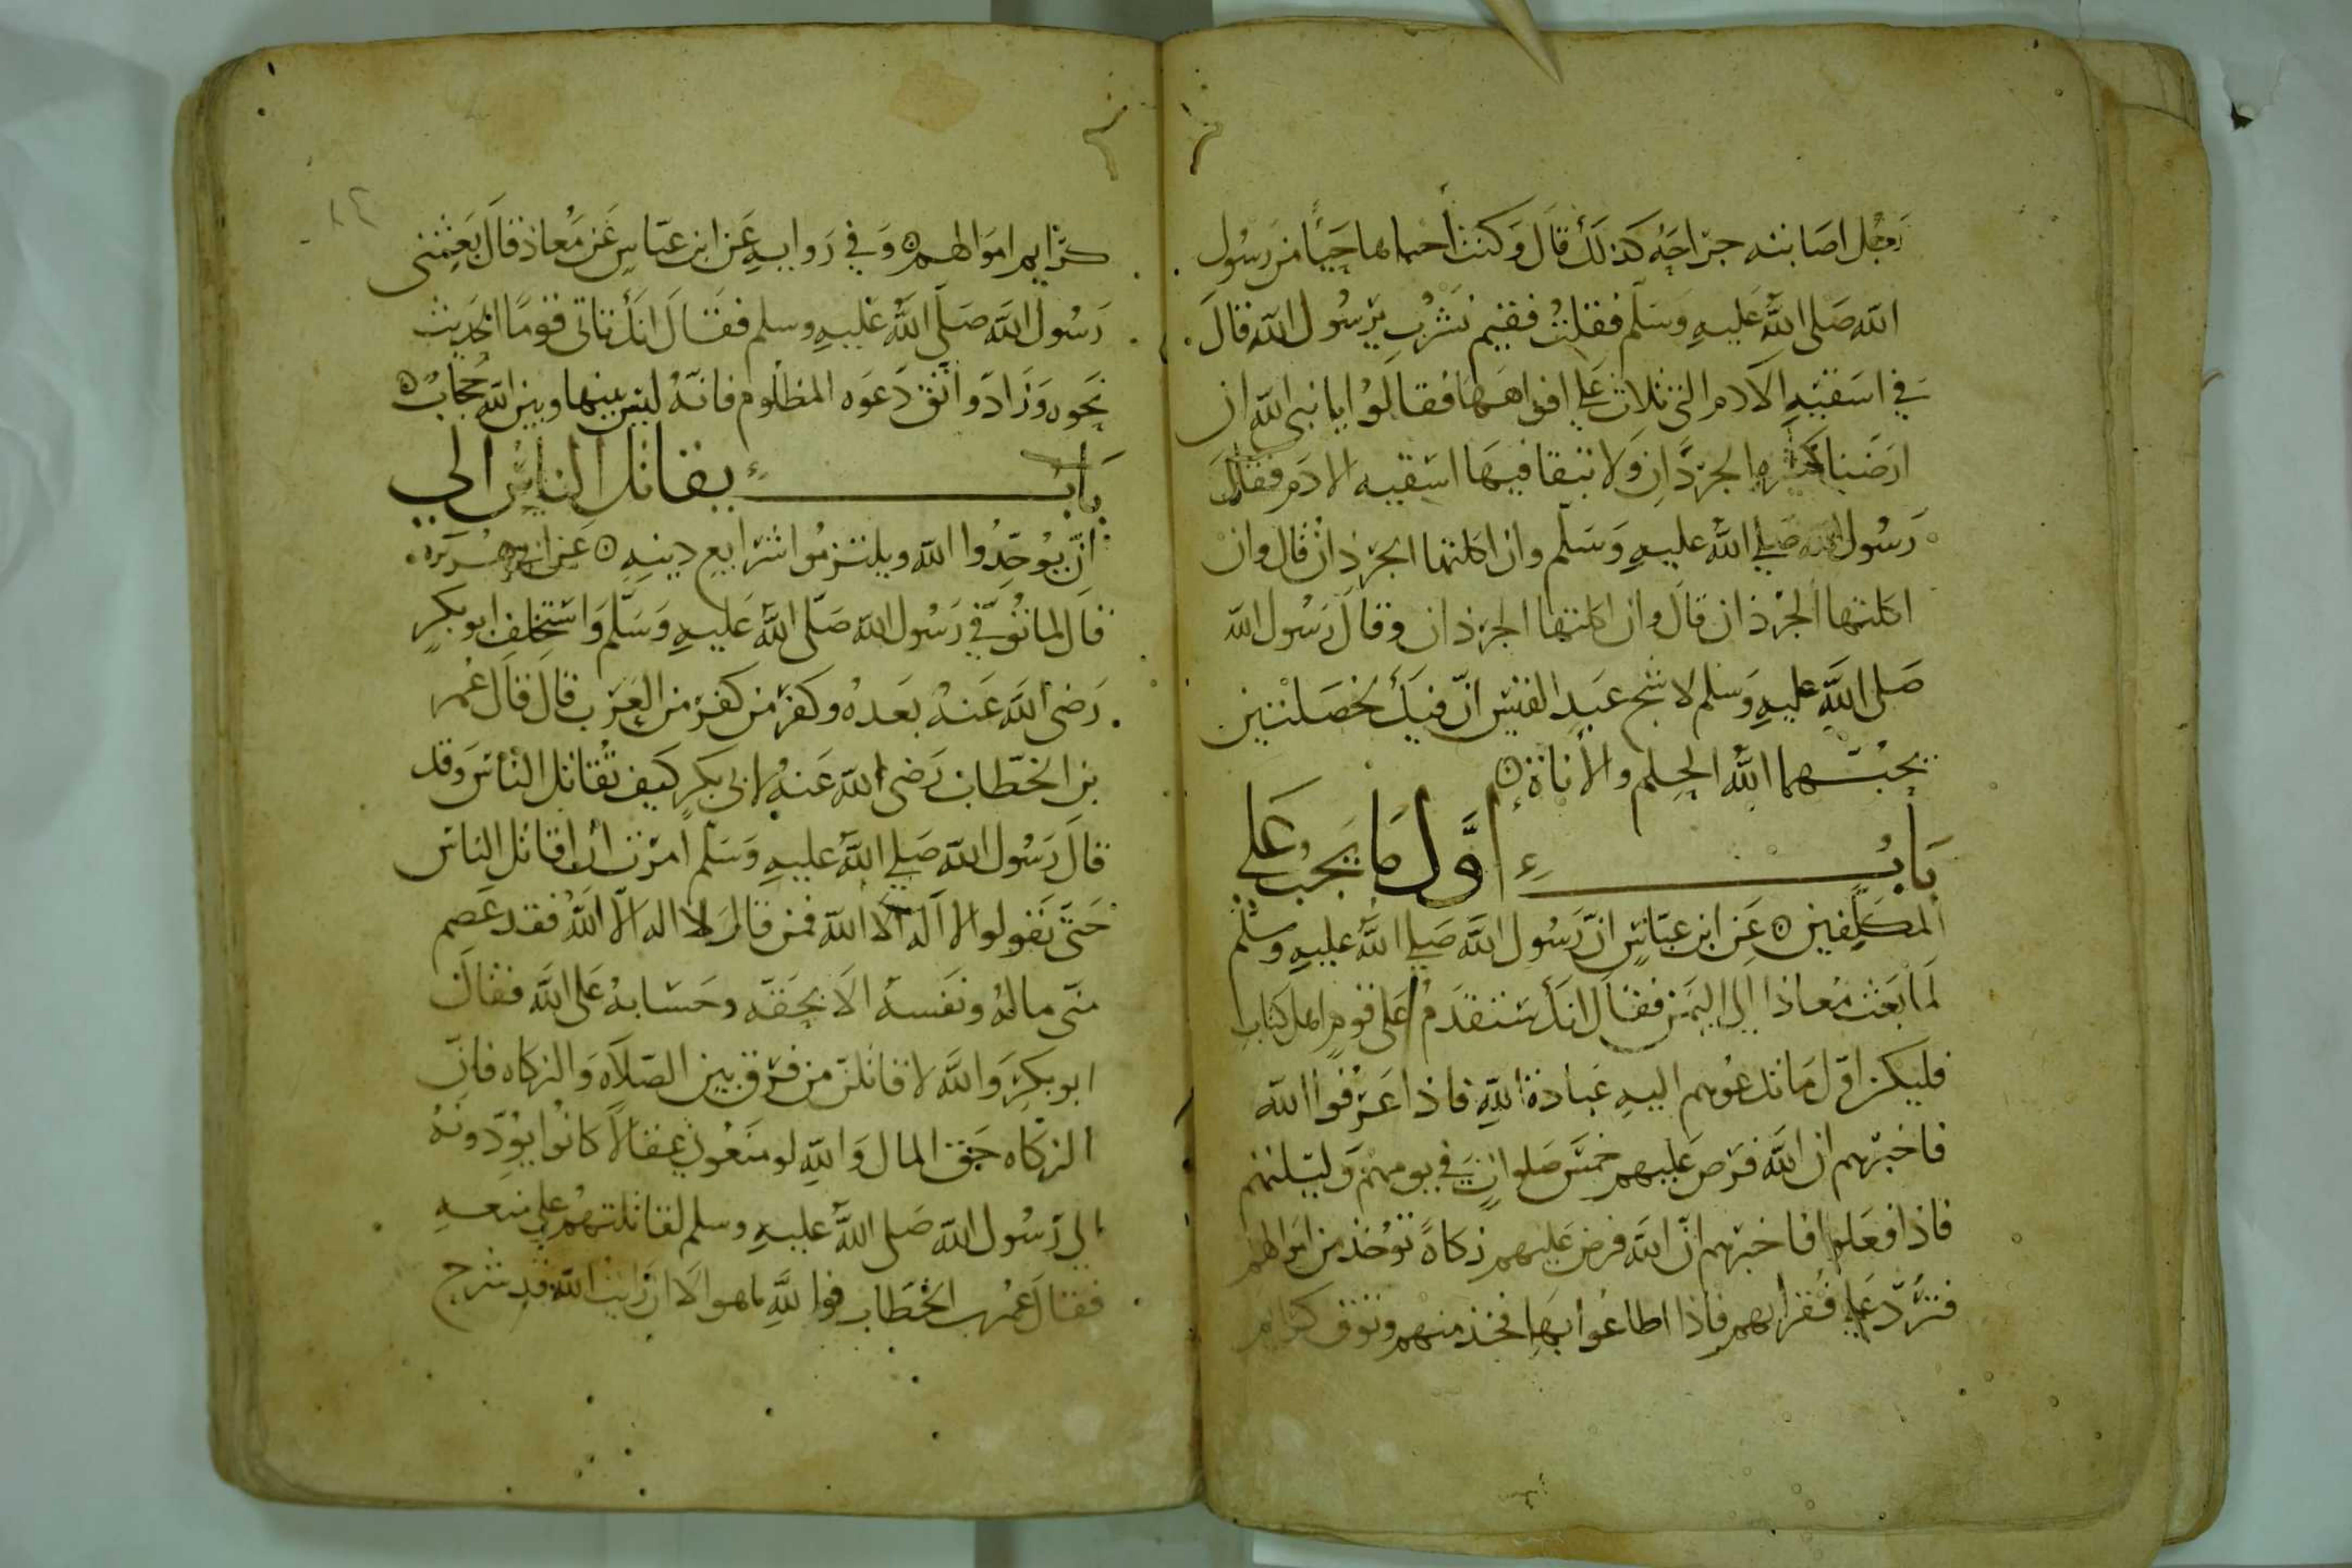 رجل اصابته جراحه كذلك قال وكنت أخباها حياً من رسول
الله صلى الله عليه وسلم فقلت ففيم نشرب يرسول الله قال
في اسقيه الادم التي تلاث على افواهها فقالوا يا نبى الله ان
ارضنا كثيره الجرذان ولا تبقا فيها اسقيه الادم فقال
رسول الله صلى الله عليه وسلم وان اكلتها الجرذان قال وان
اكلتها الجرذان قال وان اكلتها الجرذان وقال رسول الله
صلى الله عليه وسلم لاشج عبد القيس انّ فيك لخصلتين
يحبهما الله الحلم والأناة
باب اوّل ما يجب على
المكلفين عن ابن عباس انّ رسول الله صلى الله عليه وسلم
لما بعث معاذا الى اليمن فقال انك ستقدم على قوم اهل كتاب
فليكن اوّل ما تدعوهم اليه عبادة الله فاذا عرفوا الله
فاخبرهم ان الله فرض عليهم خمس صلوات في يومهم وليلتهم
فاذا فعلوا فاخبرهم انّ الله فرض عليهم زكاة توخذ من اموالهم
فتردّ على فقرايهم فاذا اطاعوا بها فخذ منهم وتوق كرايم
كرايم اموالهم وفي روايه عن ابن عباس عن معاذ قال بعثنى
رسول الله صلى الله عليه وسلم فقال انك تاتى قوما الحديث
نحوه وزاد واتق دعوه المظلوم فانه ليس بينها وبين الله حجاب
باب يقاتل الناس الي
انّ يوحدوا الله ويلتزموا شرايع دينه عن ابى هريره
قال لما توفي رسول الله صلى الله عليه وسلم واستخلف ابو بكر
رضى الله عنه بعده وكفر من كفر من العرب قال قال عمر
بن الخطاب رضى الله عنه لابى بكر كيف تقاتل الناس وقد
قال رسول الله صلى الله عليه وسلم امرت أن اقاتل الناس
حتى يقولوا لا اله الا الله فمن قال لا اله الا الله فقد عصم
منى ماله ونفسه الا بحقه وحسابه على الله فقال
ابو بكر والله لاقاتلنّ من فرق بين الصلاه والزكاه فانّ
الزكاه حق المال والله لو منعونى عقالا كانوا يؤدونه
الى رسول الله صلى الله عليه وسلم لقاتلتهم على منعه
فقال عمر بن الخطاب فوالله ما هو الا ان رايت الله قد شرح